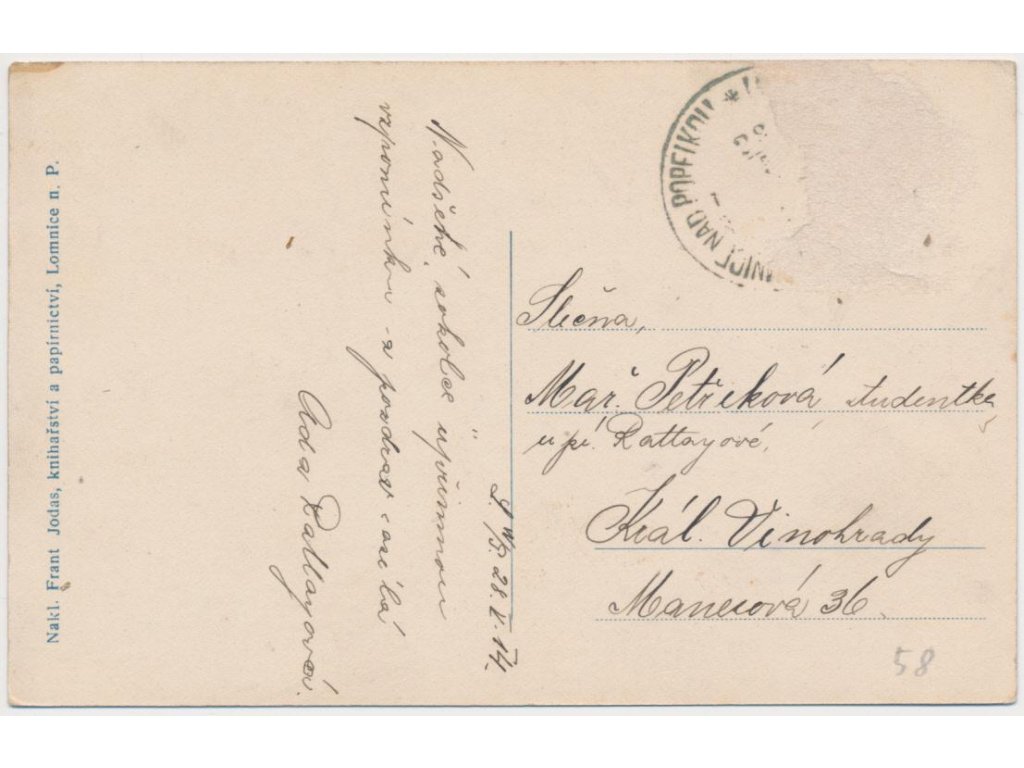 Nakl. Frant Jodas, knihařství a papírnictví, Lomnice n. P.
28. V. 14.
Nadšené sokolce upřímnou
vzpomínku a pozdrav zasílá
Ada Rattayová.
NICE NAD POPELKOU *
Slečna,
Mař. Petřeková studentka
u pí. Rattayové,
Král. Vinohrady
Manesová 36.
58